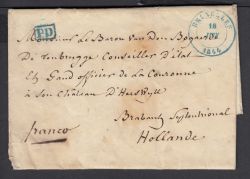 PD
BRUXELLES
18
1844
Monsieur Le Baron van den Bogaerde
De Terbrugge Conseiller d'Etat
Et Grand officier de la Couronne
à son Château d'Heeswyk
Brabant Septentrional
franco
Hollande